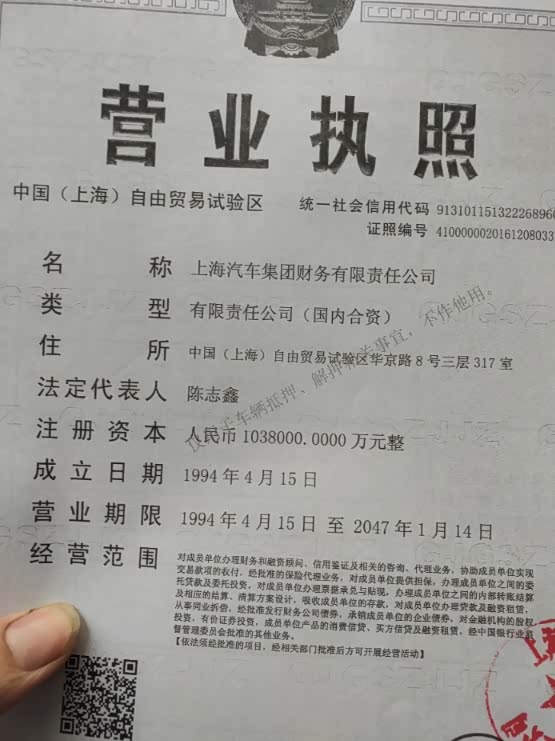 营业执照
中国（上海）自由贸易试验区
统一社会信用代码 91310115132226896
证照编号 4100000020161208033
名 称 上海汽车集团财务有限责任公司
类 型 有限责任公司（国内合资）
住 所 中国（上海）自由贸易试验区华京路8号三层317室
法定代表人 陈志鑫
注册资本 人民币1038000.0000万元整
成立日期 1994年4月15日
营业期限 1994年4月15日 至 2047年1月14日
经营范围
对成员单位办理财务和融资顾问、信用鉴证及相关的咨询、代理业务，协助成员单位实现
交易款项的收付，经批准的保险代理业务，对成员单位提供担保，办理成员单位之间的委
托贷款及委托投资，对成员单位办理票据承兑与贴现，办理成员单位之间的内部转账结算
及相应的结算、清算方案设计，吸收成员单位的存款，对成员单位办理贷款及融资租赁，
从事同业拆借，经批准发行财务公司债券，承销成员单位的企业债券，对金融机构的股权
投资，有价证券投资，成员单位产品的消费信贷、买方信贷及融资租赁，经中国银行业监
督管理委员会批准的其他业务。
【依法须经批准的项目，经相关部门批准后方可开展经营活动】
车辆抵押、解押相关事宜，不作他用。